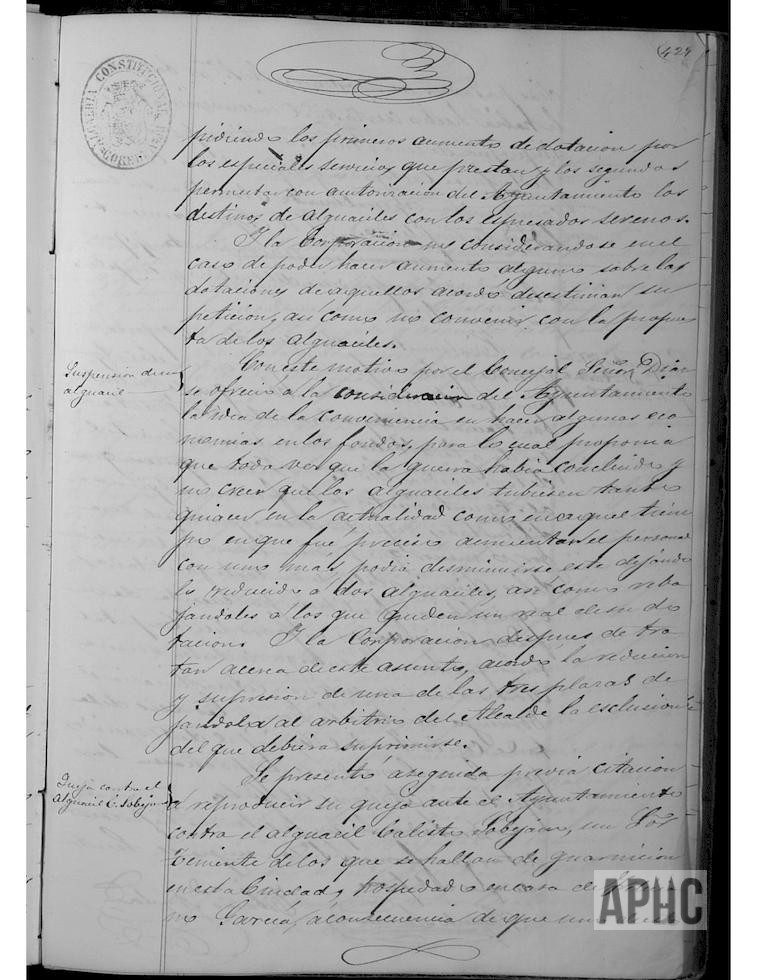 424
ALCALDIA CONSTITUCIONAL
pidiendo los primeros aumento de dotacion por
los especiales servicios que prestan y los segundos
permutar con autorizacion del Ayuntamiento los
destinos de alguaciles con los espresados serenos.
Y la Corporacion no considerandose en el
caso de poder hacer aumento alguno sobre las
dotaciones de aquellos acordó desestimar su
peticion, asi como no convenir con la propues
ta de los alguaciles.
Suspension de un
alguacil
Con este motivo por el Concejal Señor Diaz
se ofrecio a la consideracion del Ayuntamiento
la idea de la conveniencia en hacer algunas eco
nomias en los fondos, para lo cual proponia
que toda vez que la guerra habia concluido y
no creer que los alguaciles tubiesen tanto
quiacer en la actualidad como en aquel tiem
po en que fué preciso aumentar el personal
con uno más podia desminuirse este dejando
lo reducido á dos alguaciles, asi como reba
jandoles á los que queden un real de su do
tacion. Y la Corporacion despues de tra
tar acerca de este asunto, acordó la reducion
y supresion de una de las tres plazas de
jandola al arbitrio del Alcalde la esclusion
del que debiera suprimirse.
Queja contra el
alguacil C. Lobejon
Se presentó aseguida previa citacion
á reproducir su queja ante el Ayuntamiento
contra el alguacil Calisto Lobejon, un
Teniente de los que se hallan de guarnicion
en esta Ciudad y hospedado en casa de
no Garcia, á consecuencia de que
APHC